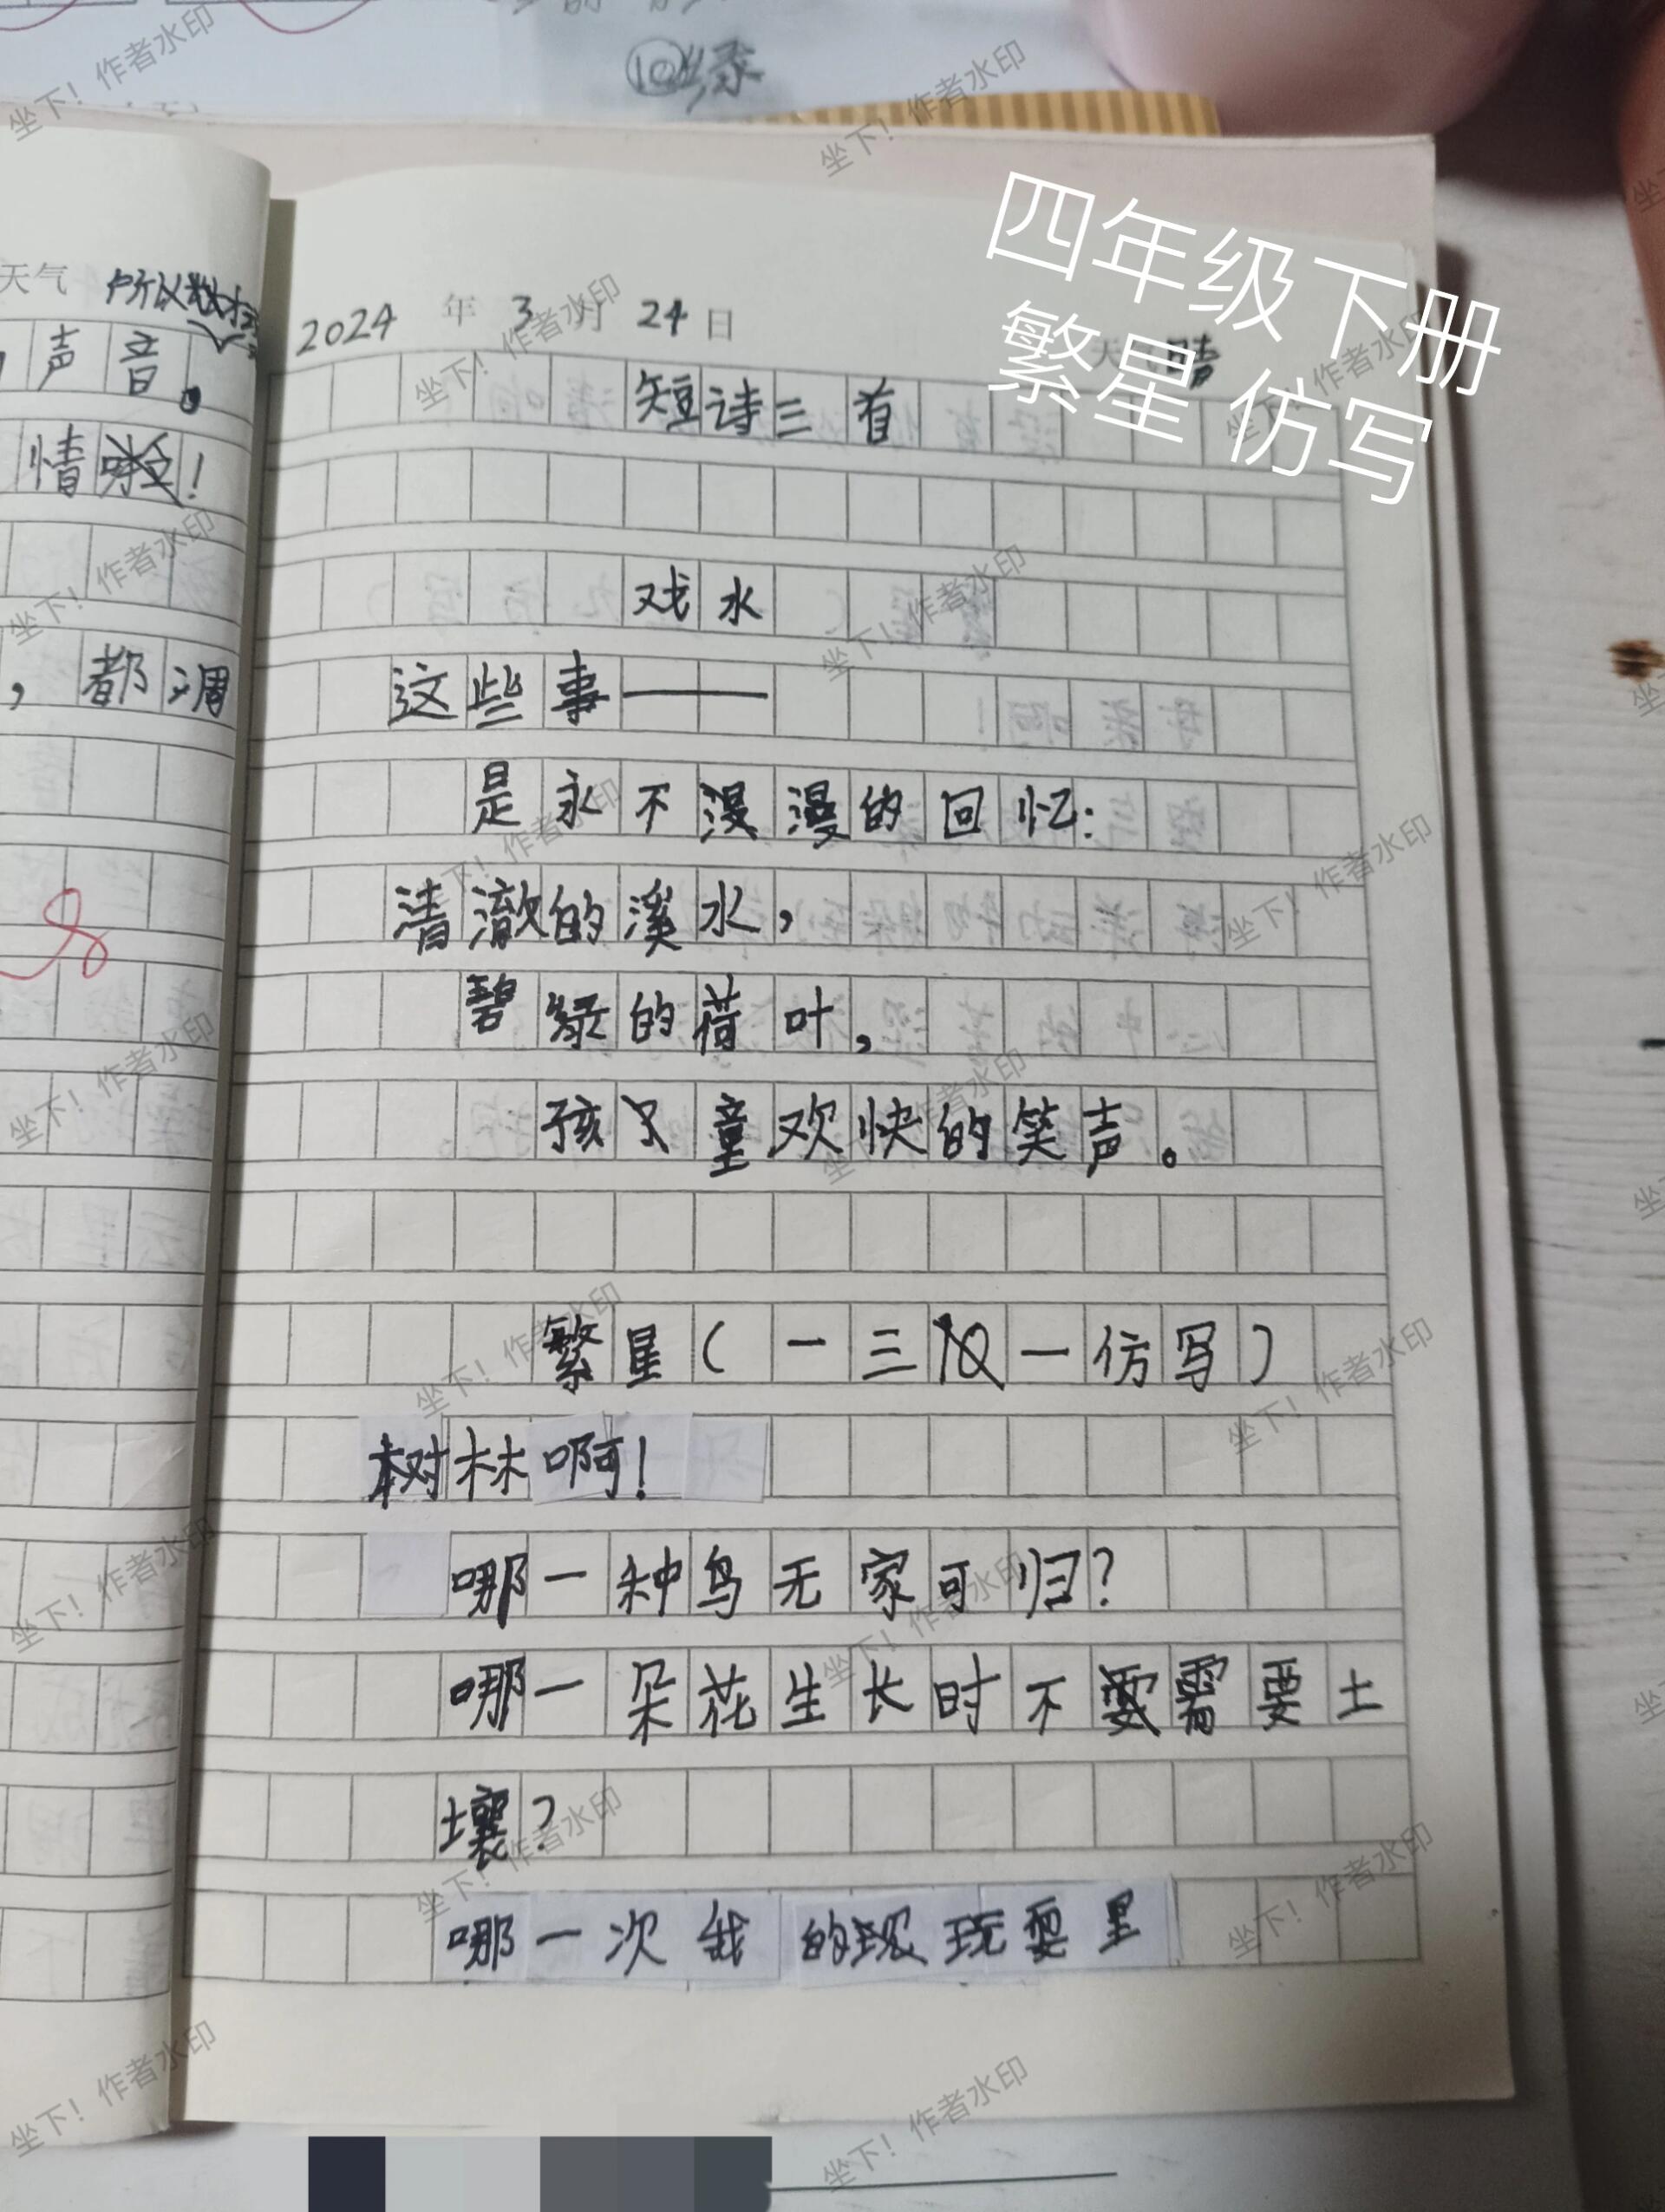 绿
天气 所以
声音。
情!
,都凋
四年级下册
繁星 仿写
2024年3月24日 天气 晴
短诗三首
戏水
这些事——
是永不漫漫的回忆:
清澈的溪水,
碧绿的荷叶,
孩童欢快的笑声。
繁星(一三一仿写)
树林啊!
哪一种鸟无家可归?
哪一朵花生长时不需要土
壤?
哪一次我的玩耍里
坐下!作者水印